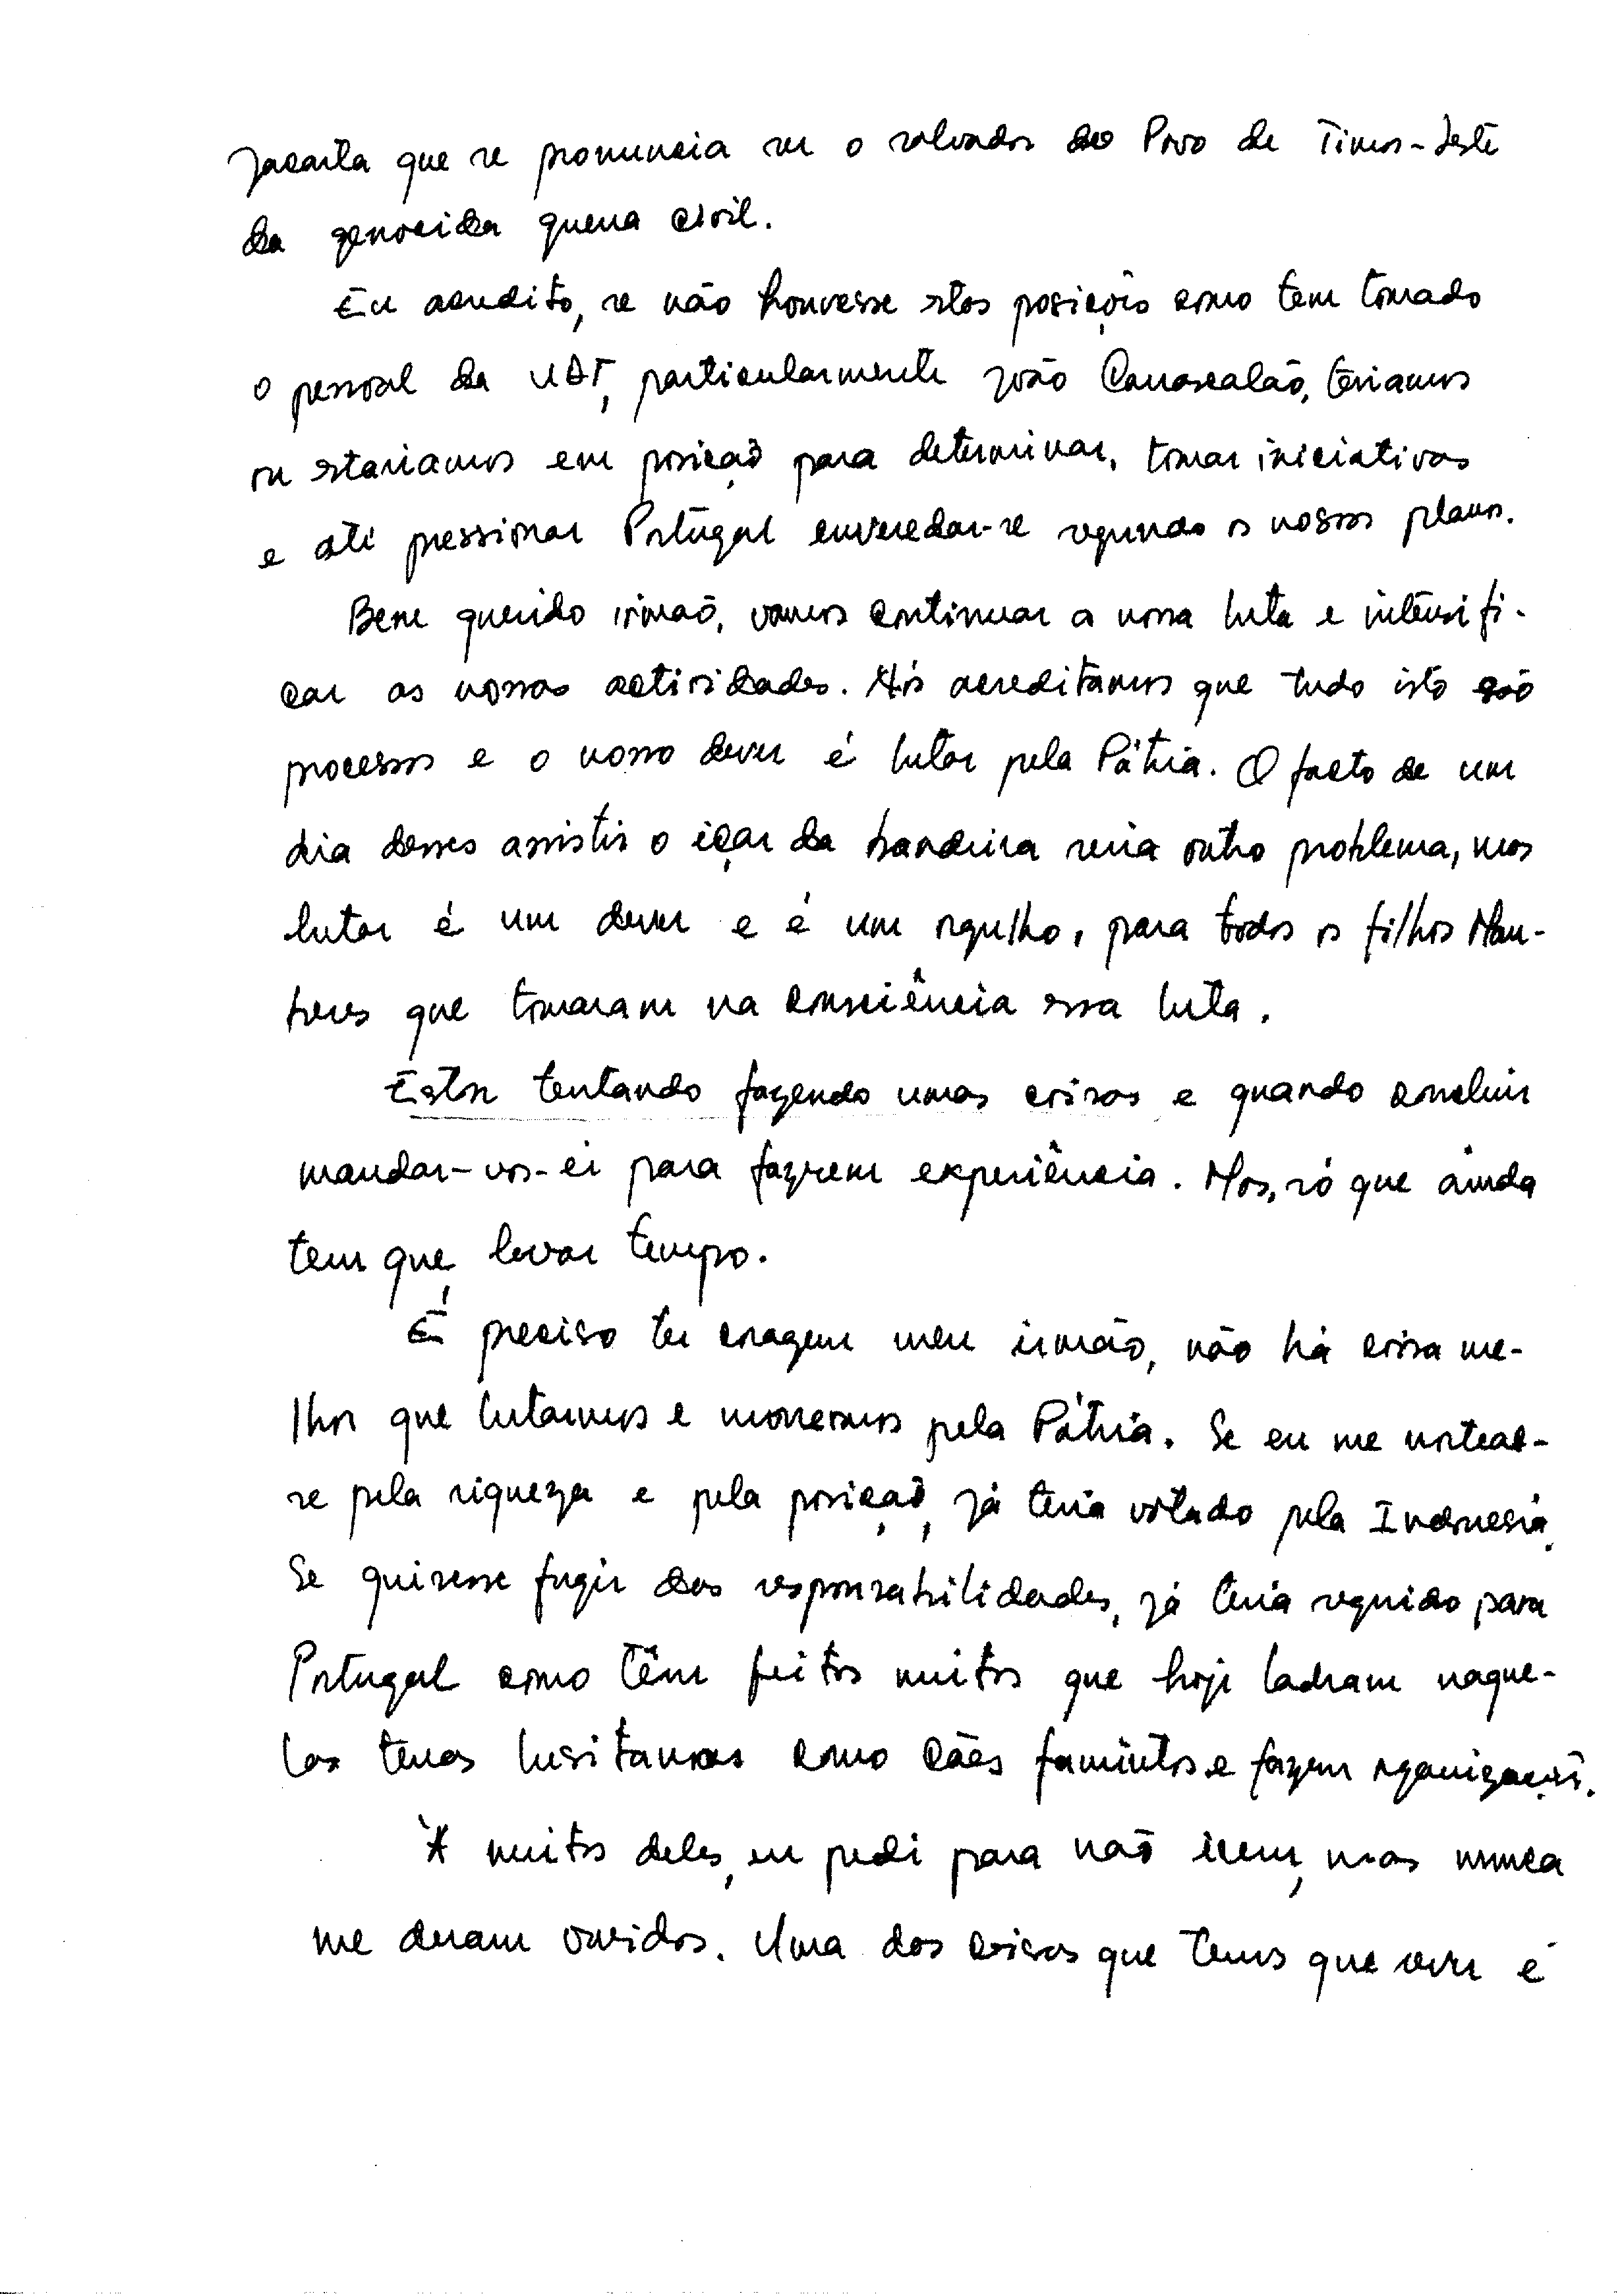 Jacarta que se pronuncia ser o salvador do Povo de Timor-Leste
da genocida guerra civil.
Eu acredito, se não houvesse estas posições como tem tomado
o pessoal da UDT, particularmente João Carrascalão, teriamos
ou estariamos em posição para determinar, tomar iniciativas
e até pressionar Portugal enveredar-se segundo os nossos planos.
Bem querido irmão, vamos continuar a nossa luta e intensifi-
car as nossas actividades. Nós acreditamos que tudo isto são
processos e o nosso dever é lutar pela Pátria. O facto de um
dia desses assistir o içar da bandeira seria outro problema, mas
lutar é um dever e é um orgulho, para todos os filhos Mau-
beres que tomaram na consciência essa luta.
Estou tentando fazendo umas coisas e quando concluir
mandar-vos-ei para fazerem experiência. Mas, só que ainda
tem que levar tempo.
É preciso ter coragem meu irmão, não há coisa me-
lhor que lutarmos e morrermos pela Pátria. Se eu me nortear-
se pela riqueza e pela posição, já teria votado pela Indonesia.
Se quisesse fugir das responsabilidades, já teria seguido para
Portugal como têm feitos muitos que hoje ladram naque-
las terras lusitanas como cães famintos e fazem organizações.
À muitos deles, eu pedi para não irem, mas nunca
me deram ouvidos. Uma das coisas que temos que ver é